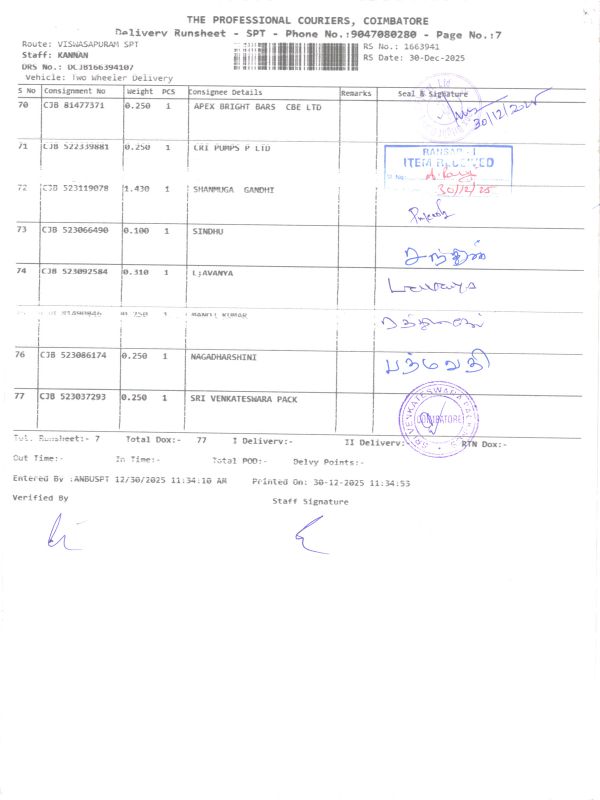 THE PROFESSIONAL COURIERS, COIMBATORE
Delivery Runsheet - SPT - Phone No.:9047080280 - Page No.:7
Route: VISWASAPURAM SPT
RS No.: 1663941
Staff: KANNAN
RS Date: 30-Dec-2025
DRS No.: DCJB166394107
Vehicle: Two Wheeler Delivery
S No Consignment No Weight PCS Consignee Details Remarks Seal & Signature
70 CJB 81477371 0.250 1 APEX BRIGHT BARS CBE LTD
30/12/2025
71 CJB 522339881 0.250 1 CRI PUMPS P LTD
ITEM RECEIVED
30/12/25
72 CJB 523119078 1.430 1 SHANMUGA GANDHI
73 CJB 523066490 0.100 1 SINDHU
74 CJB 523092584 0.310 1 L;AVANYA
Lavanya
75 CJB 81490846 0.250 1 MANOJ KUMAR
76 CJB 523086174 0.250 1 NAGADHARSHINI
பத்மாவதி
77 CJB 523037293 0.250 1 SRI VENKATESWARA PACK
SRI VENKATESWARA PACK
COIMBATORE
Tot. Runsheet:- 7 Total Dox:- 77 I Delivery:- II Delivery:- RTN Dox:-
Out Time:- In Time:- Total POD:- Delvy Points:-
Entered By :ANBUSPT 12/30/2025 11:34:10 AM Printed On: 30-12-2025 11:34:53
Verified By
Staff Signature